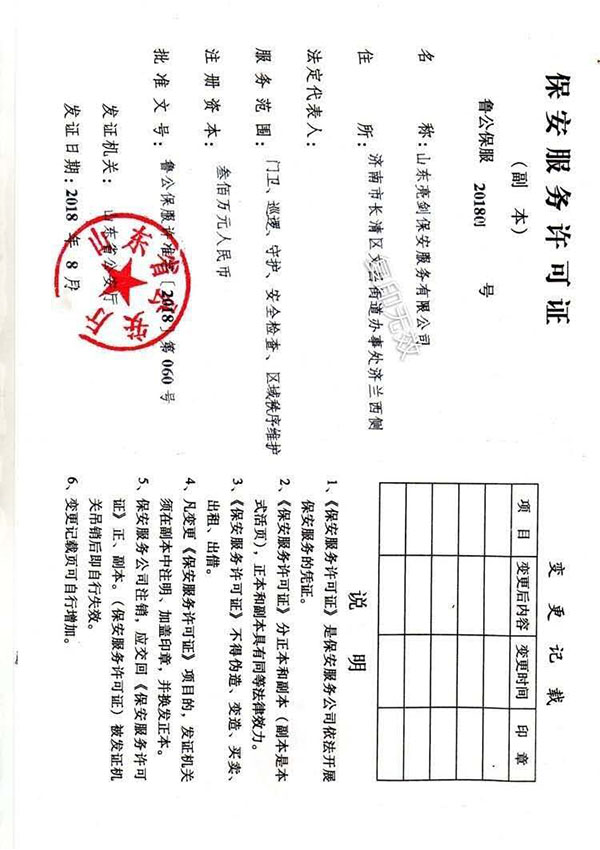 保安服务许可证
（副 本）
鲁公保服 2018001 号
名 称：山东亮剑保安服务有限公司
住 所：济南市长清区文昌街道办事处济兰西侧
法定代表人：
服务范围：门卫、巡逻、守护、安全检查、区域秩序维护
注册资本：叁佰万元人民币
批准文号：鲁公保服许准字〔2018〕第060号
发证机关：山东省公安厅
发证日期：2018 年 8 月
山东省公安厅
复印无效
变 更 记 载
项 目 变更后内容 变更时间 印 章
说 明
1、《保安服务许可证》是保安服务公司依法开展
保安服务的凭证。
2、《保安服务许可证》分正本和副本（副本是本
式活页），正本和副本具有同等法律效力。
3、《保安服务许可证》不得伪造、变造、买卖、
出租、出借。
4、凡变更《保安服务许可证》项目的，发证机关
须在副本中注明、加盖印章，并换发正本。
5、保安服务公司注销，应交回《保安服务许可
证》正、副本。（保安服务许可证）被发证机
关吊销后即自行失效。
6、变更记载页可自行增加。